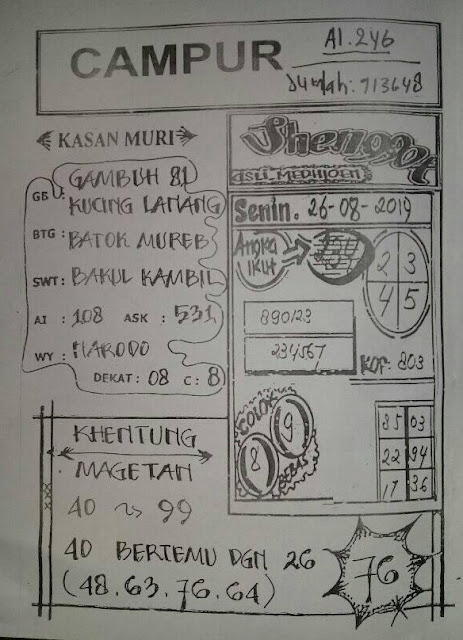 CAMPUR
AI.246
Jumlah: 713648
KASAN MURI
GB : GAMBUH 81
KUCING LANANG
BTG : BATOK MUREB
SWT : BAKUL KAMBIL
AI : 108 ASK : 531
WY : MARODO
DEKAT : 08 C : 8
Shenggot
ASLI MEDHIOEN
Senin. 26-08-2019
ANGKA IKUT
2 3
4 5
890123
234567
KOF: 803
COLOK BEBAS
8 9
85 03
22 94
17 36
KHENTUNG
MAGETAN
40 99
40 BERTEMU DGN 26
(48.63.76.64)
76